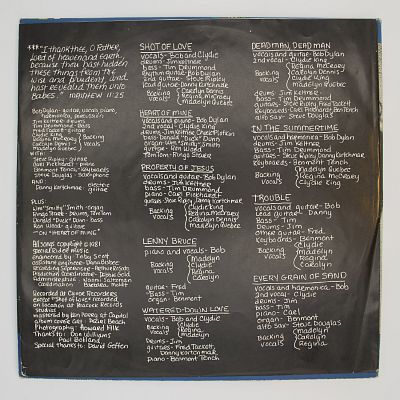 ***"I thank thee, O Father,
Lord of heaven and earth,
because thou hast hidden
these things from the
wise and prudent, and
hast revealed them unto
babes." MATTHEW 11:25
Bob Dylan - guitar, vocals, piano,
harmonica, percussion
Jim Keltner - drums
Tim Drummond - bass
Fred Tackett - guitar
Clydie King
Regina McCreary
Carolyn Dennis
Madelyn Quebec
vocals
WITH
Steve Ripley - guitar
Carl Pickhardt - piano
Benmont Tench - keyboards
Steve Douglas - saxophone
AND
Danny Kortchmar - electric guitar
PLUS
"Smitty" Smith - organ
Ringo Starr - drums, Tom Tom
Donald "Duck" Dunn - bass
Ron Wood - guitar
on "HEART OF MINE"
All songs copyright © 1981
Special Rider Music
Engineered by Toby Scott
Recorded at Clover Recorders
except "Shot of Love" recorded
on location at Peacock Records
Studios
Photography: Howard Alk
Thanks to: Don Williams
Special thanks to: David Geffen
SHOT OF LOVE
vocals - Bob and Clydie
drums - Jim Keltner
bass - Tim Drummond
Rhythm guitar - Bob Dylan
2nd guitar - Steve Ripley
lead guitar - Danny Kortchmar
Backing vocals
Clydie King
Regina McCreary
Carolyn Dennis
Madelyn Quebec
HEART OF MINE
vocals and piano - Bob Dylan
2nd vocal - Clydie King
drums - Jim Keltner, Chuck Plotkin
bass - Donald "Duck" Dunn
organ - Wm "Smitty" Smith
guitar - Ron Wood
Tom Tom - Ringo Starr
PROPERTY OF JESUS
vocals and guitar - Bob Dylan
drums - Jim Keltner
bass - Tim Drummond
piano - Carl Pickhardt
guitars - Steve Ripley, Danny Kortchmar
Backing vocals
Clydie King
Regina McCreary
Carolyn Dennis
Madelyn Quebec
LENNY BRUCE
piano and vocals - Bob
Backing vocals
Madelyn
Clydie
Regina
Carolyn
guitar - Fred
Bass - Tim
organ - Benmont
WATERED-DOWN LOVE
vocals - Bob and Clydie
Backing vocals
Clydie
Regina
Madelyn
drums - Jim
guitars - Fred Tackett,
Danny Kortchmar
piano - Benmont Tench
DEAD MAN, DEAD MAN
vocals and guitar - Bob Dylan
2nd vocal - Clydie King
Backing vocals
Regina McCreary
Carolyn Dennis
Clydie King
Madelyn Quebec
drums - Jim Keltner
bass - Tim Drummond
guitars - Steve Ripley, Fred Tackett
keyboards - Benmont Tench
alto sax - Steve Douglas
IN THE SUMMERTIME
vocals and harmonica - Bob Dylan
drums - Jim Keltner
Bass - Tim Drummond
guitars - Steve Ripley, Danny Kortchmar
keyboards - Benmont Tench
Backing vocals
Madelyn Quebec
Regina McCreary
Clydie King
TROUBLE
vocals and guitar - Bob
Lead guitar - Danny
Bass - Tim
Drums - Jim
other guitar - Fred
Keyboards - Benmont
Backing vocals
Clydie
Madelyn
Carolyn
Regina
EVERY GRAIN OF SAND
vocals and harmonica - Bob
2nd vocal - Clydie
drums - Jim
bass - Tim
piano - Carl
organ - Benmont
alto sax - Steve Douglas
Backing vocals
Madelyn
Carolyn
Regina